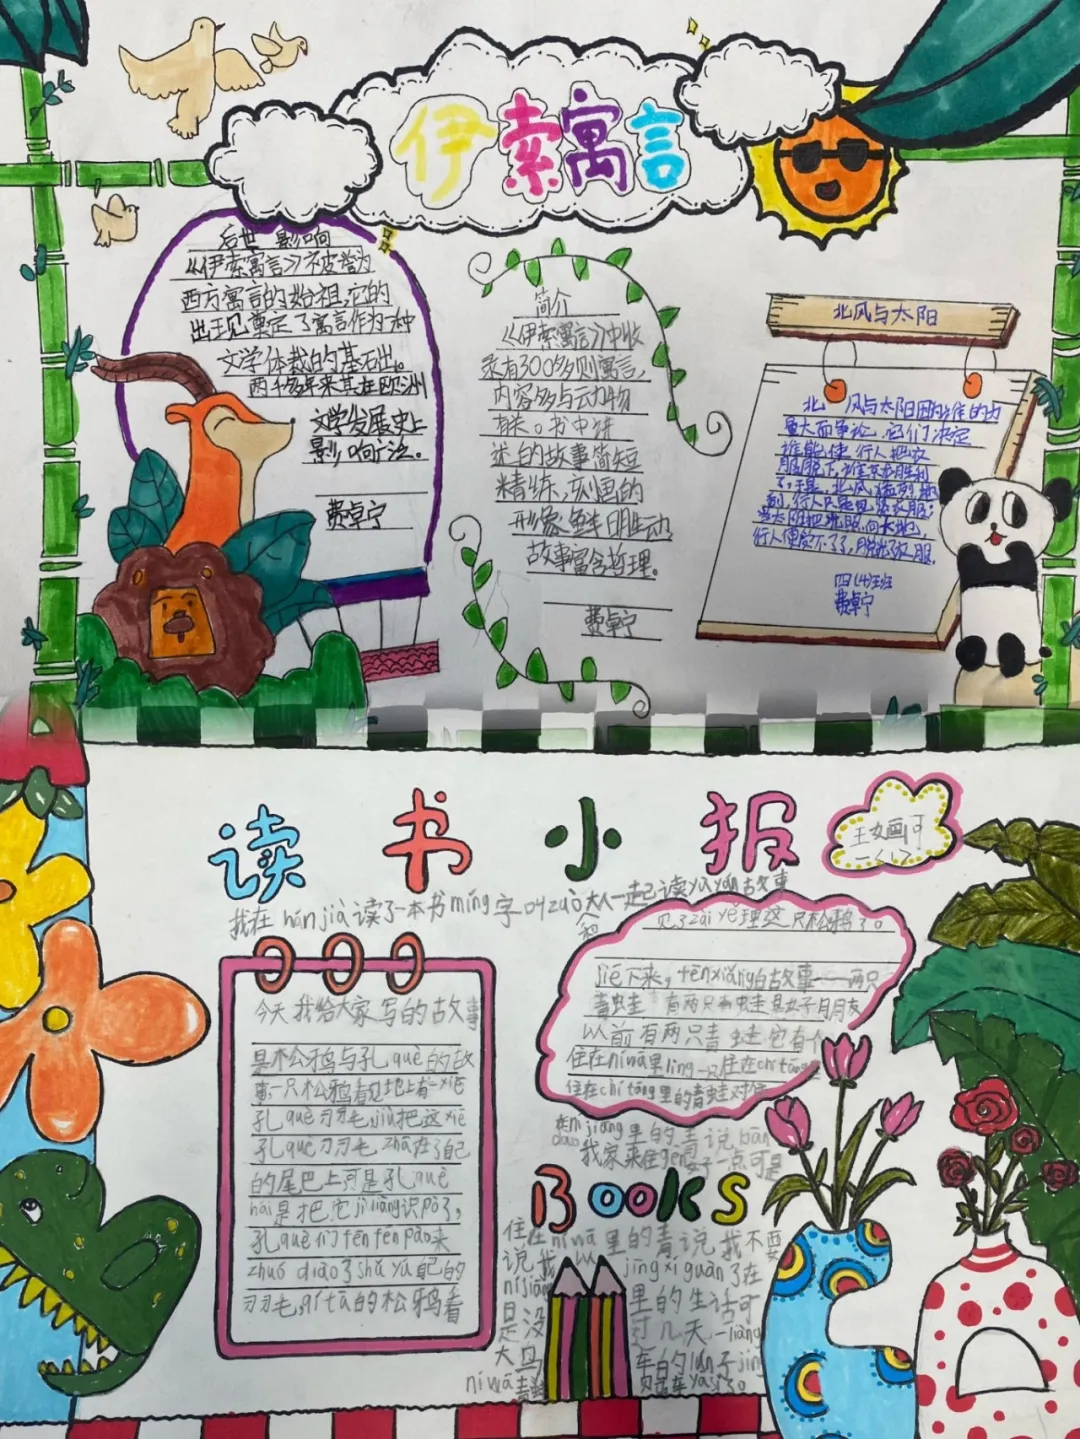 伊索寓言
后世影响
《伊索寓言》不被誉为
西方寓言的始祖,它的
出现奠定了寓言作为一种
文学体裁的基石出。
两千多年来其在欧洲
文学发展史上
影响广泛。
费卓宁
简介
《伊索寓言》中收
录有300多则寓言,
内容多与动物
有关。书中讲
述的故事简短
精练,刻画的
形象鲜明生动,
故事富含哲理。
费卓宁
北风与太阳
北风与太阳因为谁的力
量大而争论,它们决定
谁能使行人把衣
服脱下,谁就胜利
了,于是,北风猛烈地
刮,行人只是裹紧衣服;
行人便受不了了,脱掉了衣服。
四(4)班
费卓宁
读书小报
一<1>
我在hánjià读了一本书míng字叫zuò大人一起读yùyán故事
和
今天我给大家写的故事
是松鸦与孔què的故
事,一只松鸦看见地上有一xiē
孔què羽毛,jiù把这xiē
孔què羽毛zhā在了自己
的尾巴上可是孔què
hái是把它jìjiāng识pò了,
孔què们fēnfēnpǎo来
zhuó diào了shǔ yú自己的
羽毛,qítā的松鸦看
见了zài yě理这只松鸦了。
jiē下来,fēnxiǎng的故事——两只
青蛙 有两只青蛙是好子月月友
以前有两只青蛙它有个
住在nínà里lìng一只住在chítáng里
住在chítáng里的青蛙对住
在níjiāng里的青说bān
dào我家来住gèng好一点可是
Books
住在níwā里的青说我不要
说我 jīng xí guàn了在
níjiāng 里的生活可
是没 过几天一liàng
大鸟 车的lún子jiāng
níwā青蛙